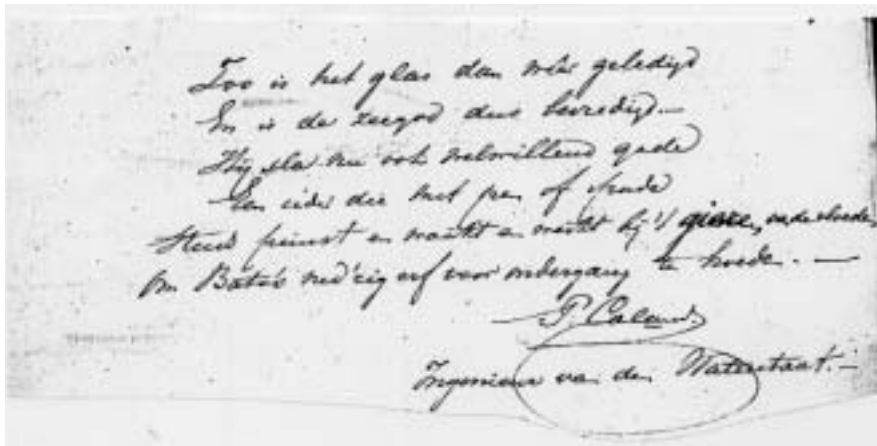 Zoo is het glas dan weêr geledigd
En is de zeegod dus bevredigd.—
Hij sla nu ook welwillend gade
Een ieder die met pen of spade
Steeds peinst en waakt en werkt bij 't gieren, van de vloeden
Om Bato's ned'rig erf voor ondergang te hoeden.—
P. Caland
Ingenieur van den Waterstaat.—